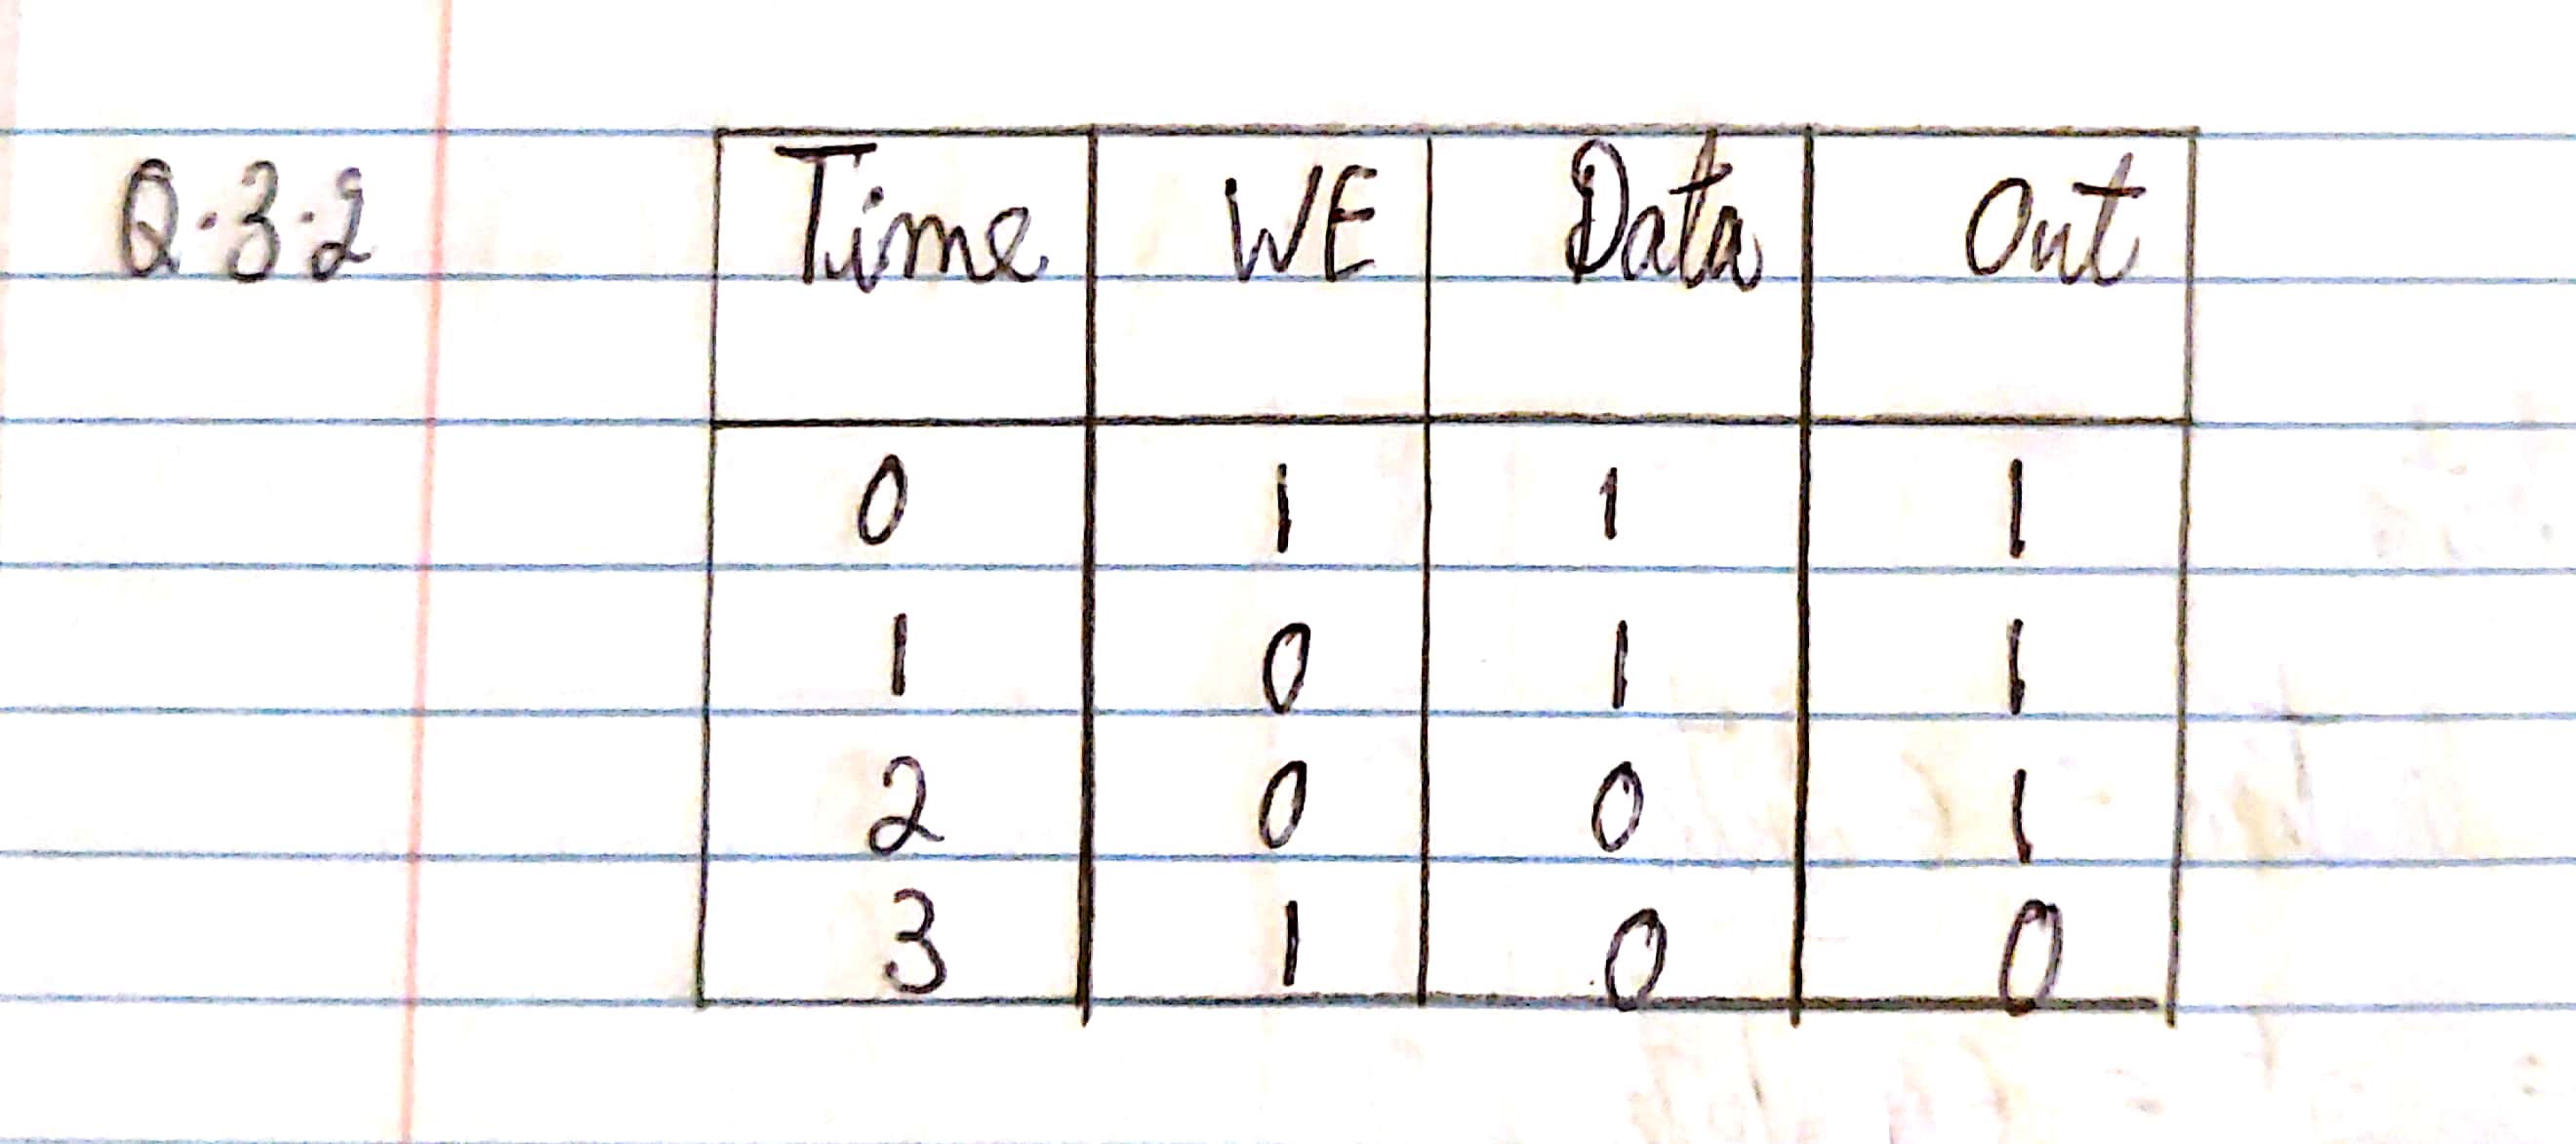 Q.3.2 Time WE Data Out
0 1 1 1
1 0 1 1
2 0 0 1
3 1 0 0